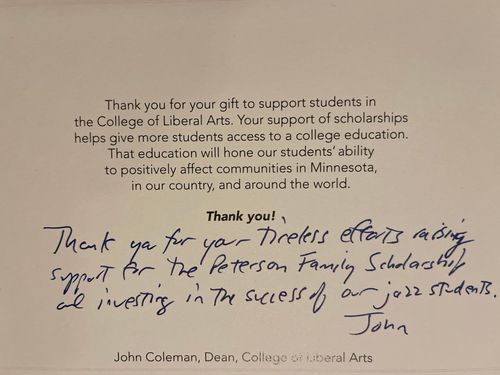 Thank you for your gift to support students in
the College of Liberal Arts. Your support of scholarships
helps give more students access to a college education.
That education will hone our students' ability
to positively affect communities in Minnesota,
in our country, and around the world.
Thank you!
Thank you for your tireless efforts raising
support for the Peterson Family Scholarship
and investing in the success of our jazz students.
John
John Coleman, Dean, College of Liberal Arts